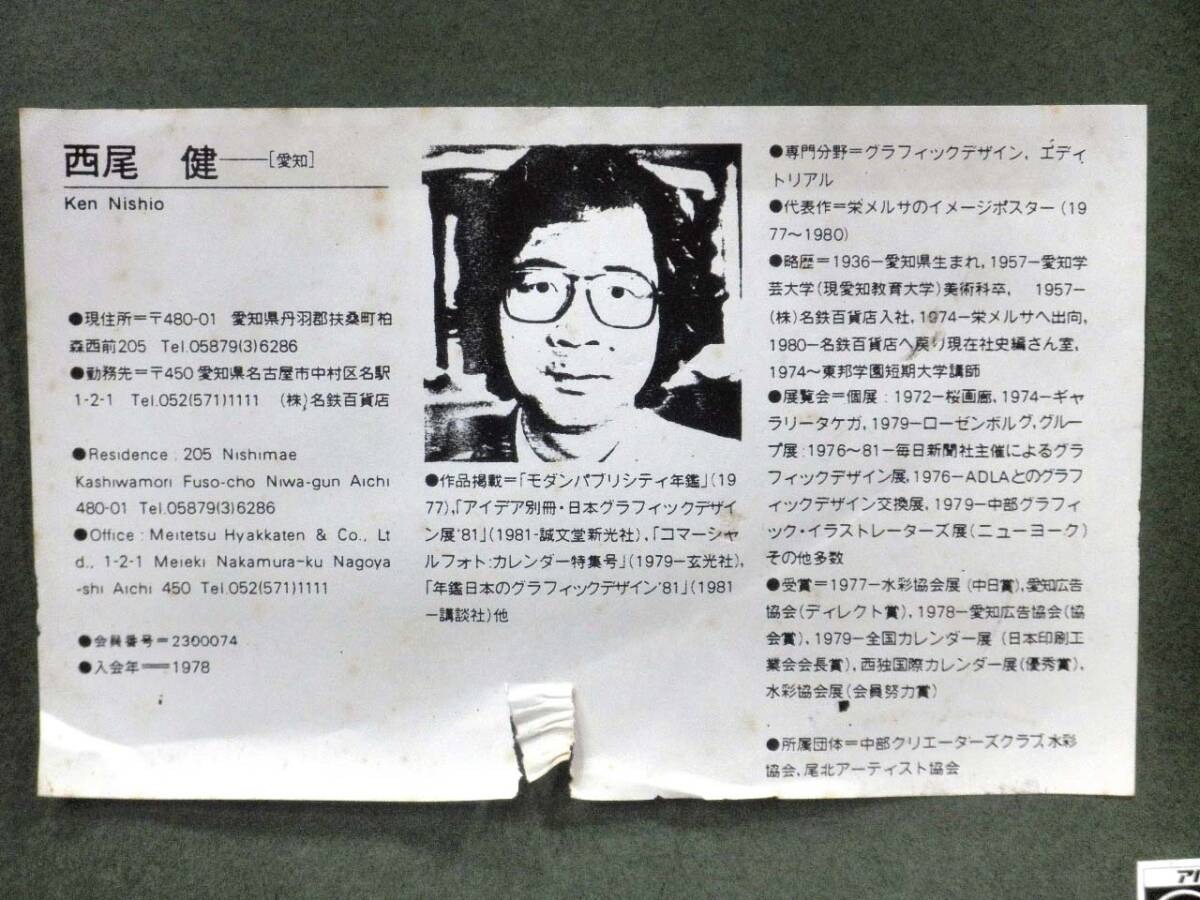 西尾　健──[愛知]
Ken Nishio
●現住所=〒480-01　愛知県丹羽郡扶桑町柏
森西前205　Tel.05879(3)6286
●勤務先=〒450 愛知県名古屋市中村区名駅
1-2-1　Tel.052(571)1111　(株)名鉄百貨店
●Residence : 205 Nishimae
Kashiwamori Fuso-cho Niwa-gun Aichi
480-01 Tel.05879(3)6286
●Office : Meitetsu Hyakkaten & Co., Lt
d., 1-2-1 Meieki Nakamura-ku Nagoya
-shi Aichi 450 Tel.052(571)1111
●会員番号=2300074
●入会年=1978
●作品掲載=「モダンパブリシティ年鑑」(19
77),「アイデア別冊・日本グラフィックデザイ
ン展'81」(1981-誠文堂新光社),「コマーシャ
ルフォト:カレンダー特集号」(1979-玄光社),
「年鑑日本のグラフィックデザイン'81」(1981
-講談社)他
●専門分野=グラフィックデザイン, エディ
トリアル
●代表作=栄メルサのイメージポスター(19
77〜1980)
●略歴=1936-愛知県生まれ, 1957-愛知学
芸大学(現愛知教育大学)美術科卒,　1957-
(株)名鉄百貨店入社, 1974-栄メルサへ出向,
1980-名鉄百貨店へ戻り現在社史編さん室,
1974〜東邦学園短期大学講師
●展覧会=個展 : 1972-桜画廊, 1974-ギャ
ラリータケガ, 1979-ローゼンボルグ, グルー
プ展 : 1976〜81-毎日新聞社主催によるグラ
フィックデザイン展, 1976-ADLAとのグラフ
ィックデザイン交換展, 1979-中部グラフィ
ック・イラストレーターズ展(ニューヨーク)
その他多数
●受賞=1977-水彩協会展(中日賞), 愛知広告
協会(ディレクト賞), 1978-愛知広告協会(協
会賞), 1979-全国カレンダー展(日本印刷工
業会会長賞), 西独国際カレンダー展(優秀賞),
水彩協会展(会員努力賞)
●所属団体=中部クリエーターズクラブ 水彩
協会, 尾北アーティスト協会